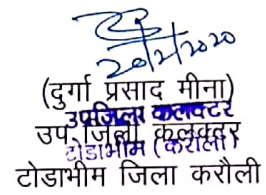 20/2/2020
(दुर्गा प्रसाद मीना)
उपजिला कलक्टर
उप जिला कलक्टर
टोडाभीम (करौली)
टोडाभीम जिला करौली